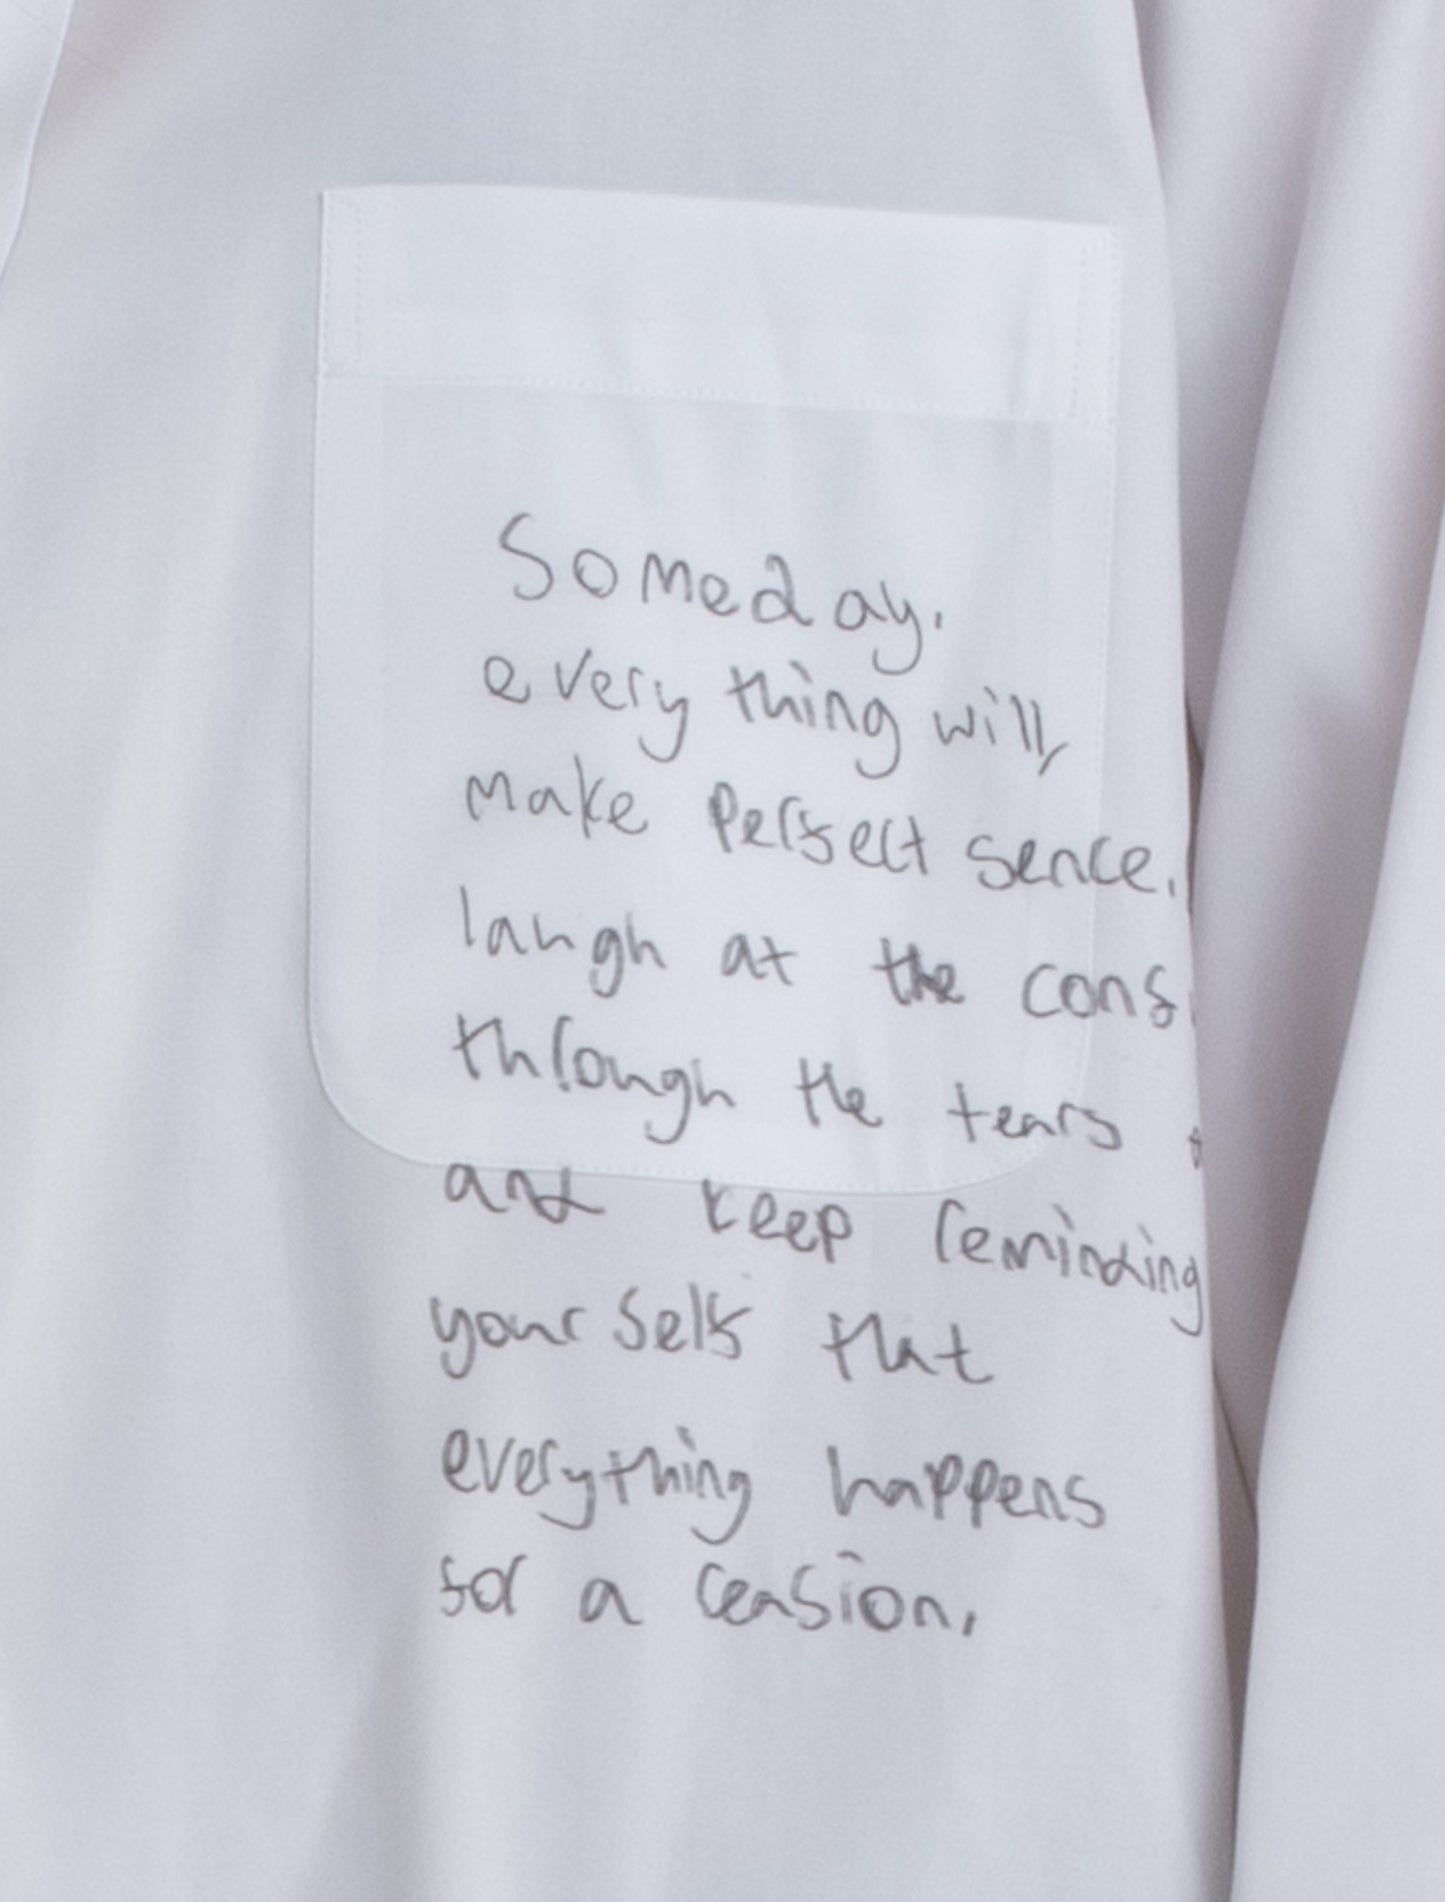 Someday.
every thing will,
make perfect sence.
laugh at the conf
through the tears
and keep reminding
your self that
everything happens
for a reasion,